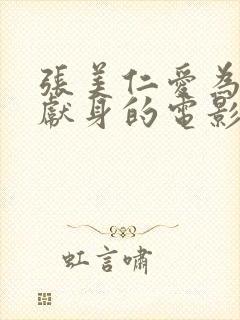 張美仁愛為
獻身的電影
虹言嘯